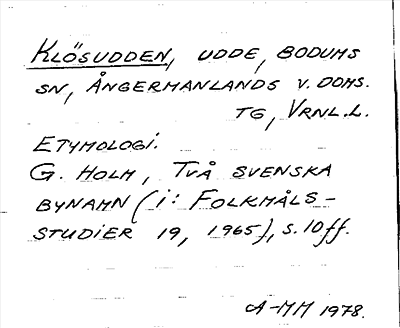 KLÖSUDDEN, UDDE, BODUMS
SN, ÅNGERMANLANDS V. DOMS.
TG, VRNL.L.
ETYMOLOGI.
G. HOLM, TVÅ SVENSKA
BYNAMN (i: FOLKMÅLS-
STUDIER 19, 1965), s. 10 ff.
A-MM 1978.